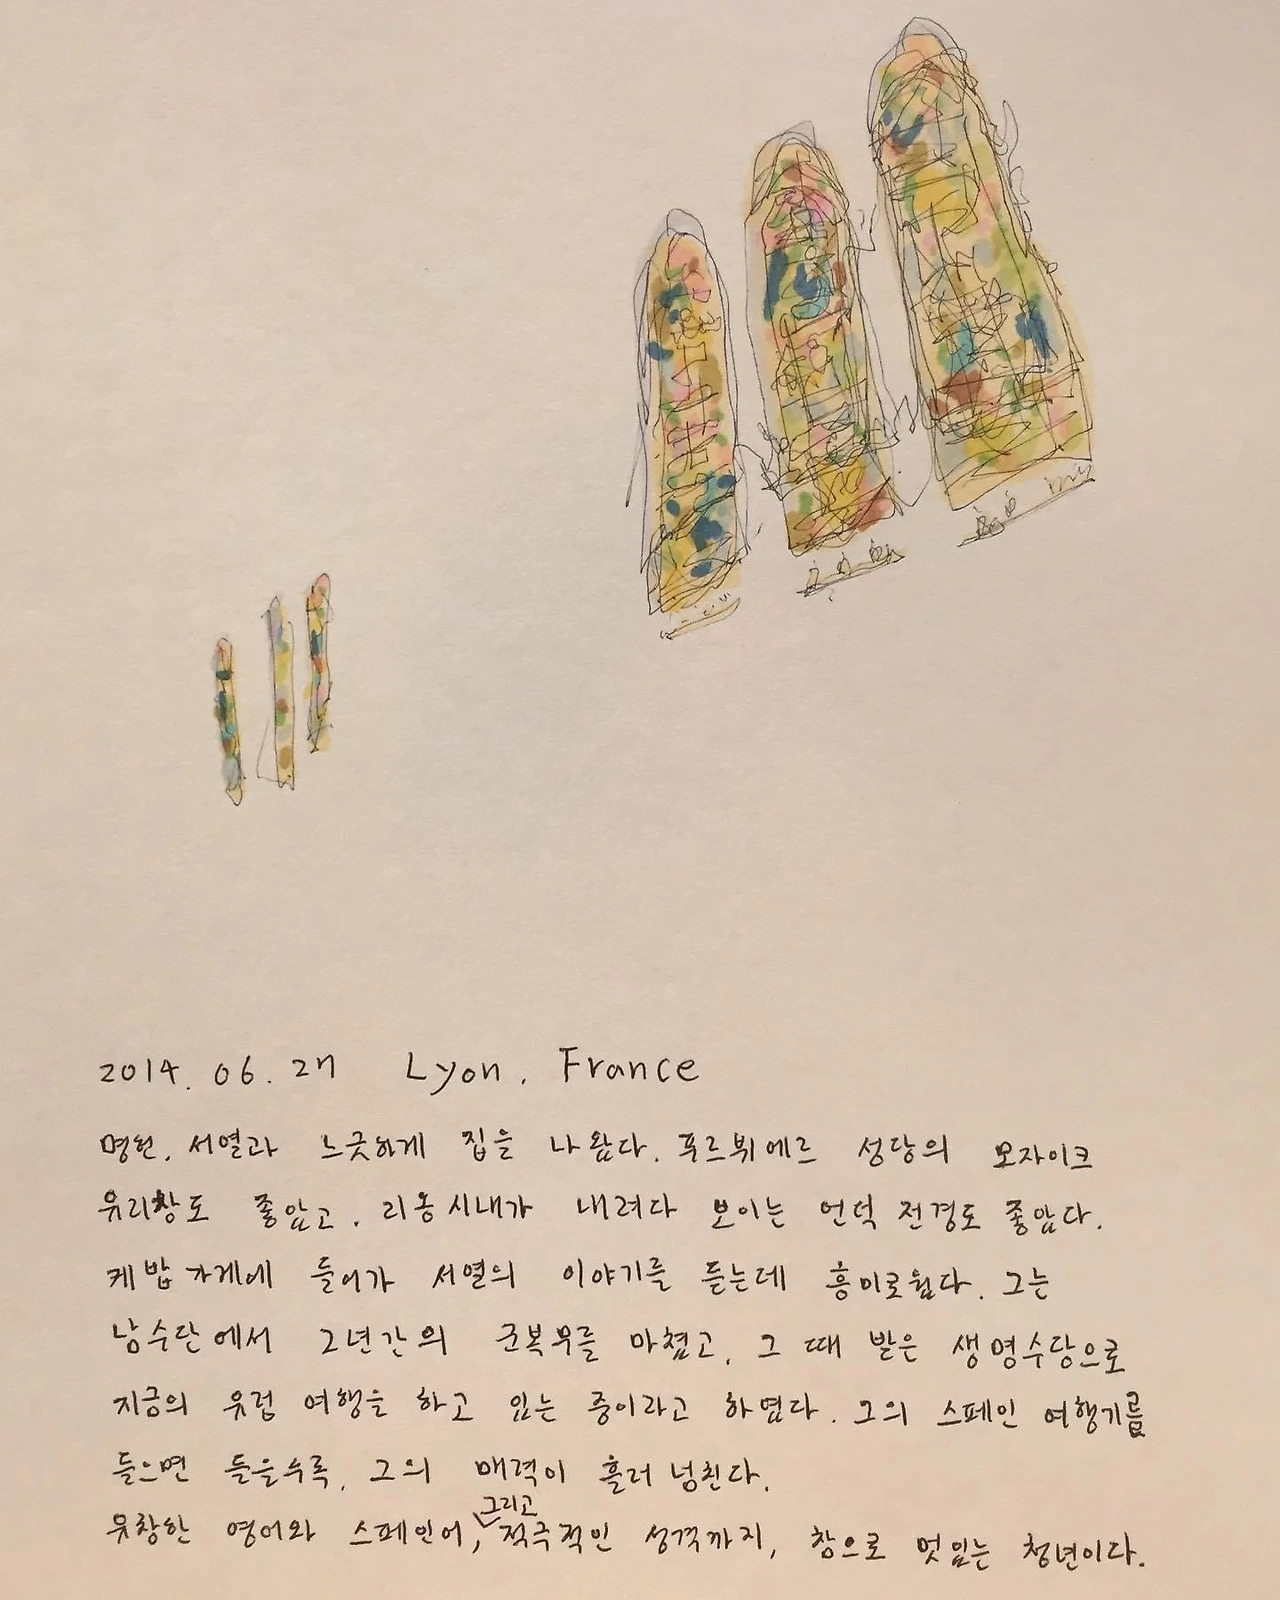 2014. 06. 27 Lyon, France
명헌, 서열과 느긋하게 집을 나왔다. 푸르뷔에르 성당의 모자이크
유리창도 좋았고, 리옹시내가 내려다 보이는 언덕 전경도 좋았다.
케밥가게에 들어가 서열의 이야기를 듣는데 흥미로웠다. 그는
남수단에서 2년간의 군복무를 마쳤고, 그 때 받은 생명수당으로
지금의 유럽 여행을 하고 있는 중이라고 하였다. 그의 스페인 여행기를
들으면 들을수록, 그의 매력이 흘러 넘친다.
유창한 영어와 스페인어, 그리고 적극적인 성격까지, 참으로 멋있는 청년이다.